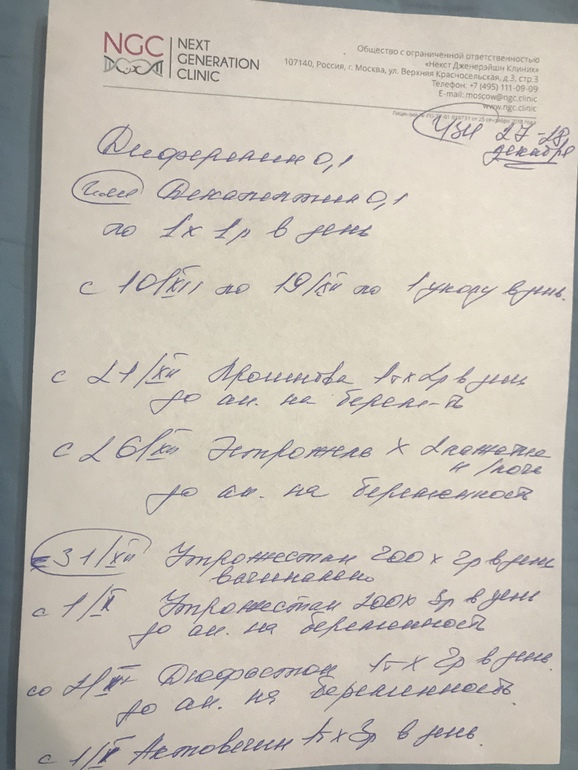 NGC NEXT GENERATION CLINIC
Общество с ограниченной ответственностью
«Некст Дженерэйшн Клиник»
107140, Россия, г. Москва, ул. Верхняя Красносельская, д.3, стр.3
Телефон: +7 (495) 111-09-09
E-mail: moscow@ngc.clinic
www.ngc.clinic
УЗИ 27-28
декабря
Диферелин 0,1
или Декапептил 0,1
по 1 х 1р в день
с 10/XII по 19/XII по 1 уколу в день.
с 21/XII Прогинова 1т х 2р в день
до ан. на берем-ть
с 26/XII Эстрожель х 2 нажатия
на ночь
до ан. на беременность
31/XII Утрожестан 200 х 2р в день
вагинально
с 1/I Утрожестан 200 х 3р в день
до ан. на беременность
со Дюфастон 1т х 2р в день
до ан. на беременность.
с Актовегин 1т х 3р в день.